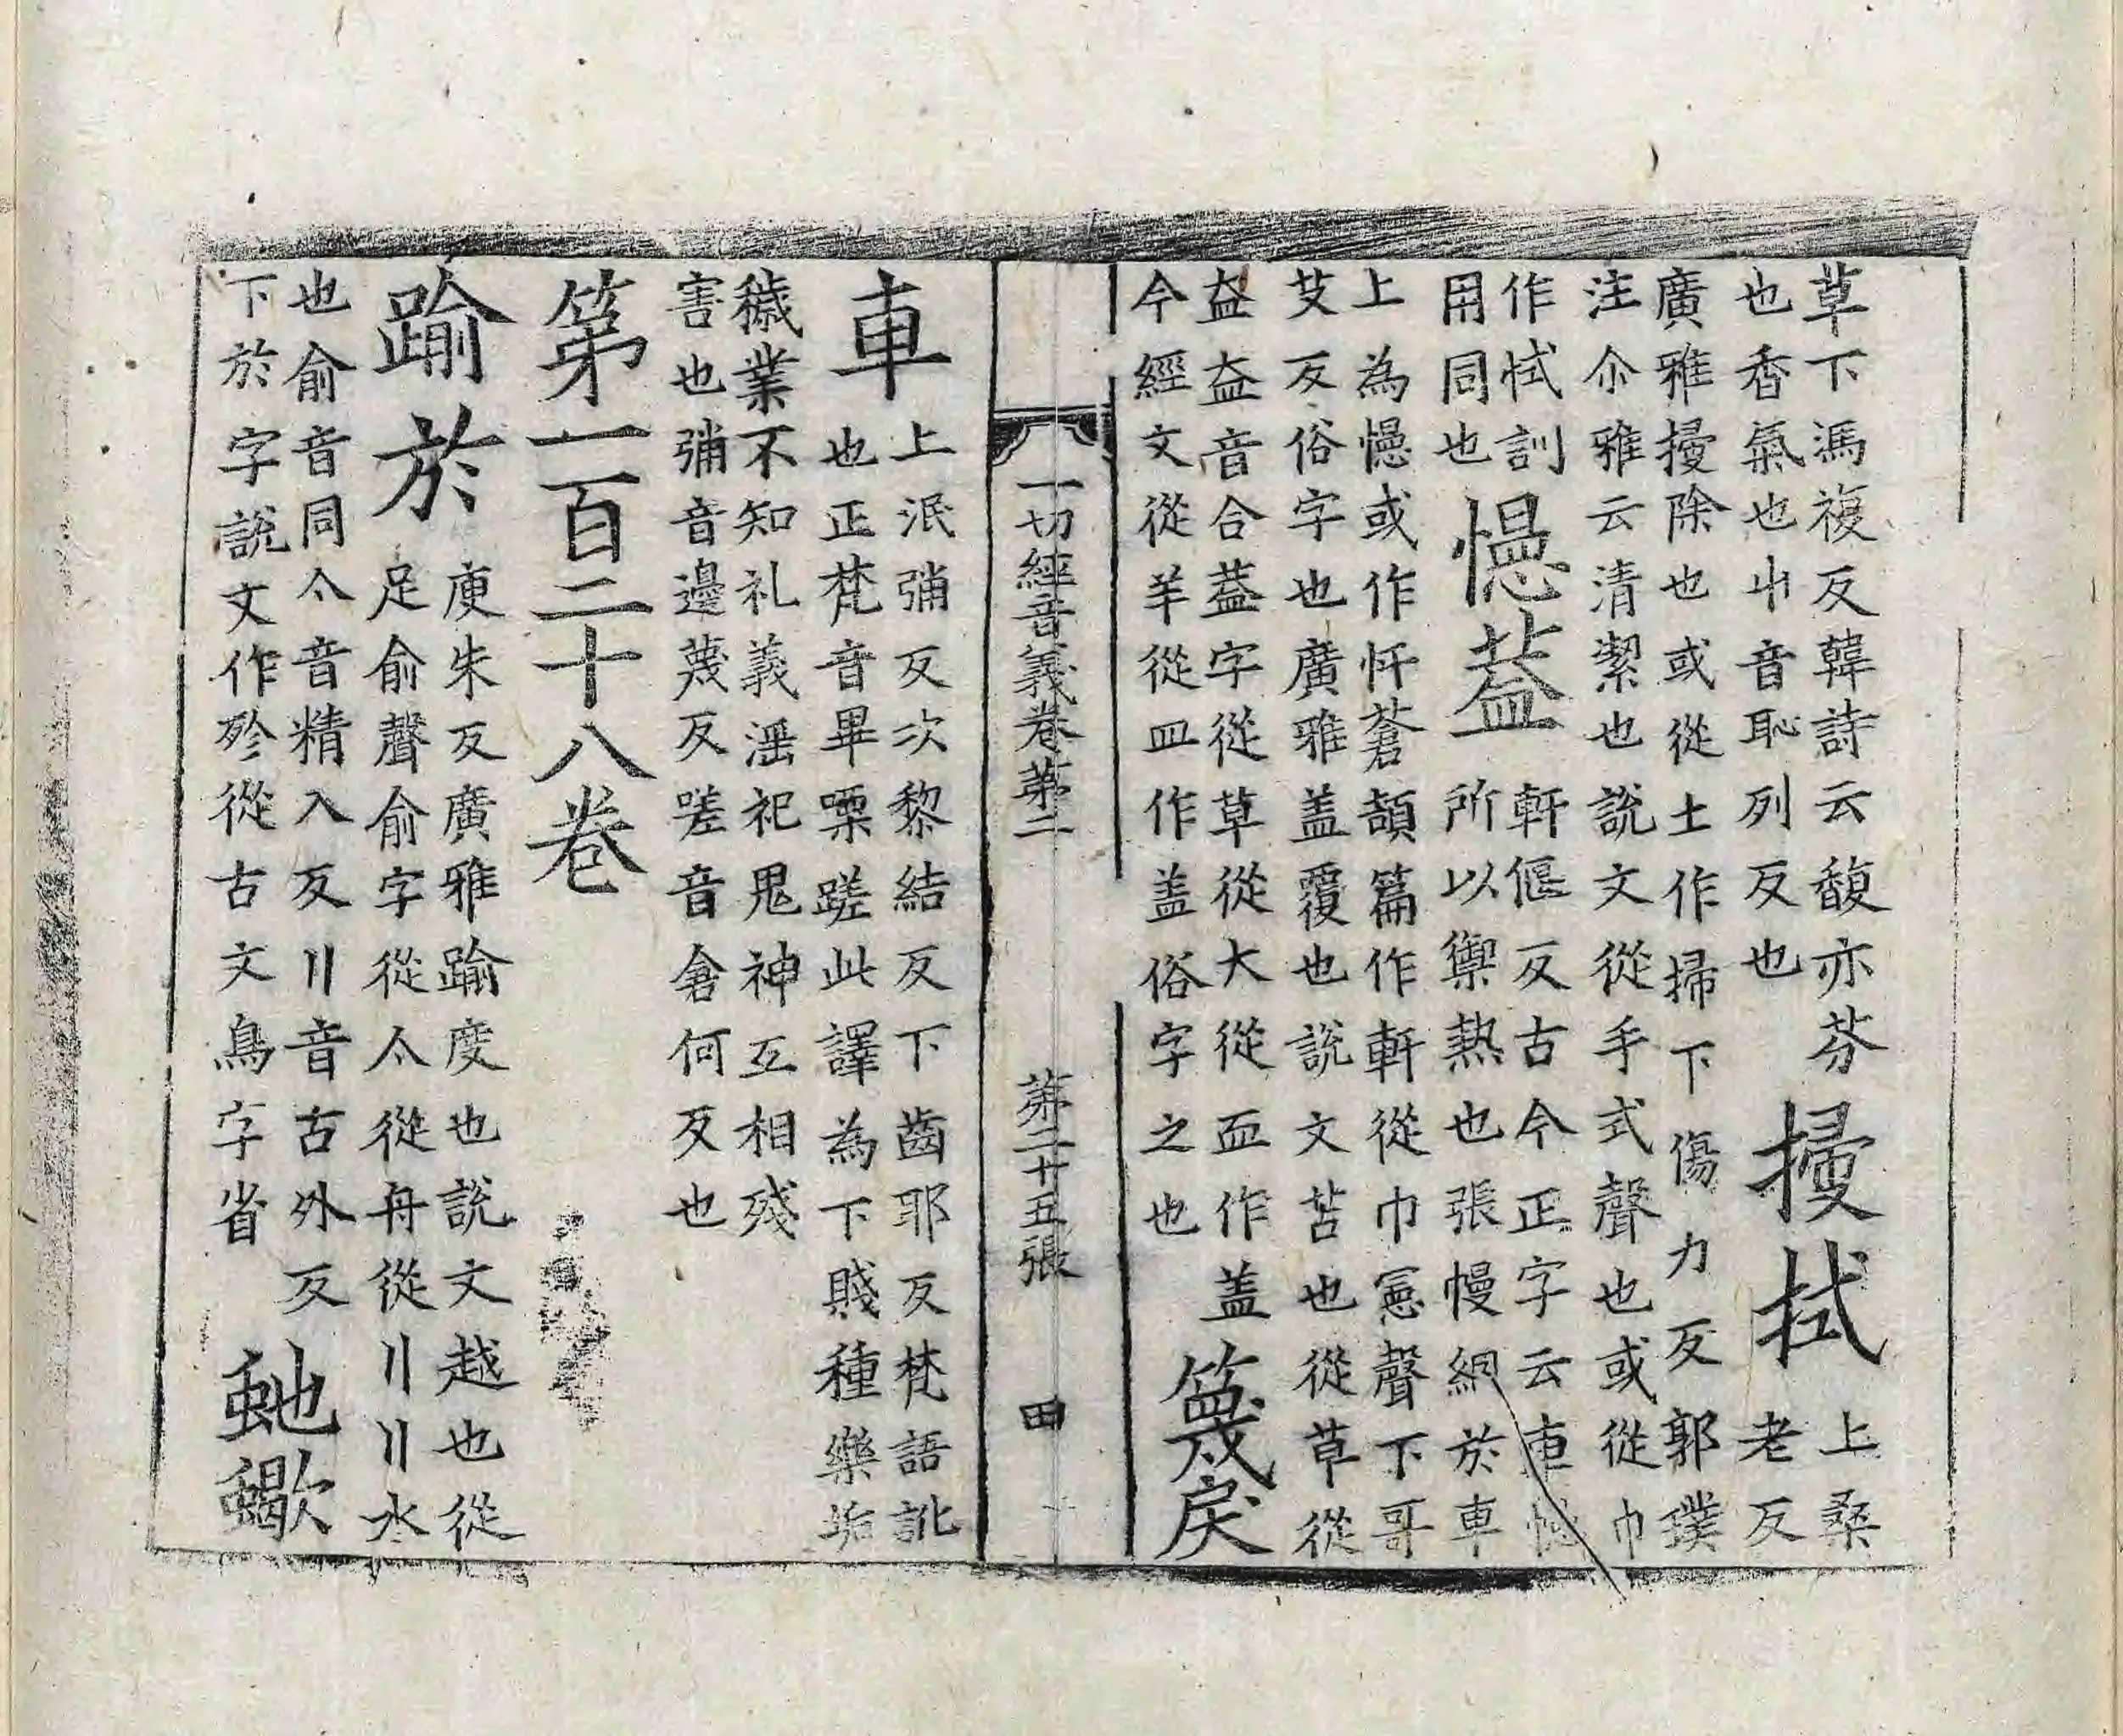 草下馮複反韓詩云馥亦芬
也香氣也屮音恥列反也
掃拭
上桑
老反
廣雅掃除也或從土作掃下傷力反郭璞
注尒雅云清潔也說文從手式聲也或從巾
作拭訓
用同也
幰葢
軒偃反古今正字云車幰
所以禦熱也張幔網於車
上為幰或作忓蒼頡篇作軒從巾憲聲下哥
艾反俗字也廣雅盖覆也說文苫也從草從
盇盇音合葢字從草從大從血作盖
今經文從羊從皿作盖俗字之也
篾戾
一切經音義卷第二 第二十五張 田
車
上泯彌反次黎結反下齒耶反梵語訛
也正梵音畢㗚蹉此譯為下賤種樂垢
穢業不知礼義滛祀鬼神互相殘
害也彌音邊蔑反嗟音倉何反也
第一百二十八卷
踰於
庾朱反廣雅踰度也說文越也從
足俞聲俞字從亼從舟從巜巜水
也俞音同亼音精入反巜音古外反
下於字說文作㱃從古文烏字省
虵蠍